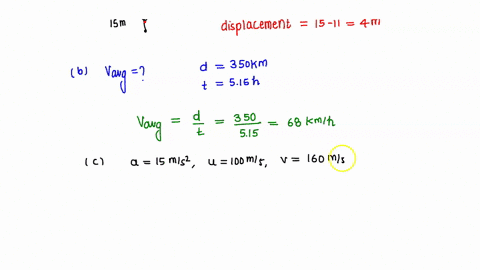 15m displacement = 15-11 = 4m
(b) Vavg = ? d = 350km
t = 5.15h
Vavg = d/t = 350/5.15 = 68 km/h
(c) a = 15 m/s², u = 100 m/s, v = 160 m/s